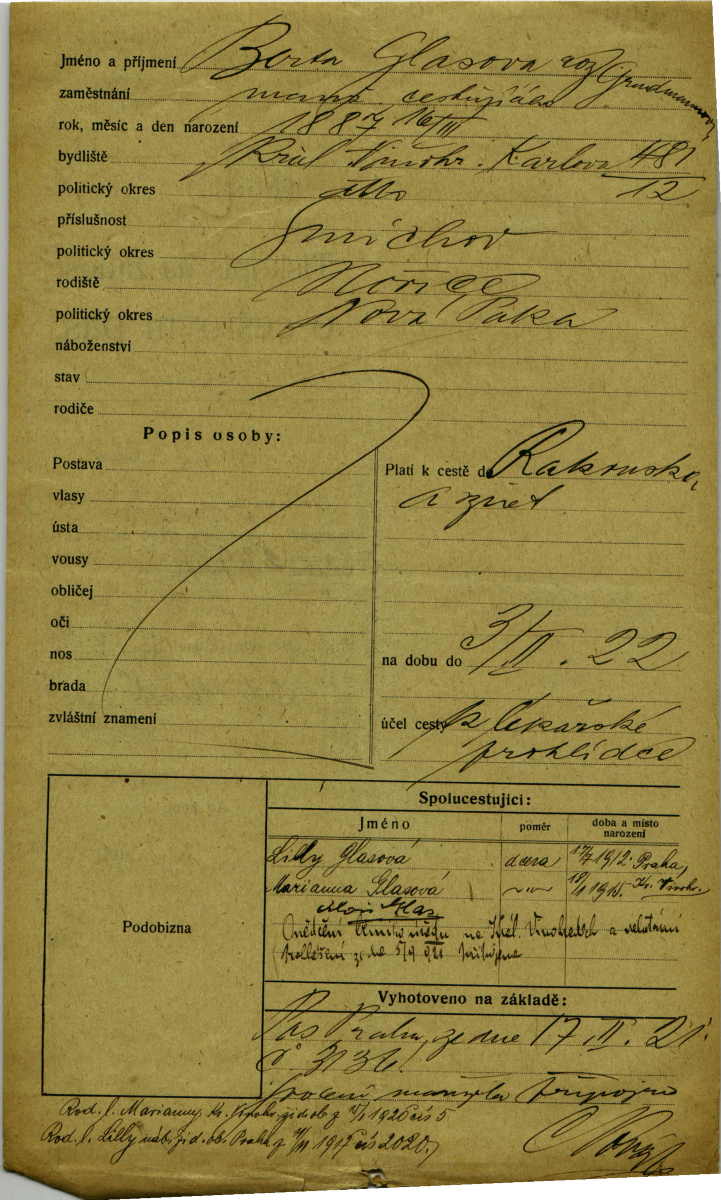 Jméno a příjmení Berta Glasova roz Grundmannova
zaměstnání manž. cestujícího
rok, měsíc a den narození 1887 16/III
bydliště Král Vinohr. Karlova 481/12
politický okres dtto
příslušnost Smichov
politický okres
rodiště Hořice
politický okres Nová Paka
náboženství
stav
rodiče
Popis osoby:
Postava
vlasy
ústa
vousy
obličej
oči
nos
brada
zvláštní znamení
Platí k cestě do Rakouska
a zpět
na dobu do 3/II. 22
účel cesty k lékařské
prohlídce
Podobizna
Spolucestující:
Jméno poměr doba a místo narození
Lilly Glasová dcera 1912 Praha,
Marianna Glasová 1915 Kr. Vinohr.
na Král. Vinohradech a
Vyhotoveno na základě:
Pas Praha, ze dne 17. II. 21.
č 3136.
svolení manžela připojeno
Rod. l. Marianny, Kr. Vinohr. žid ob z 1920 čís 5
Rod. l. Lilly náb. žid. ob. Praha z 1917 čís 2020.